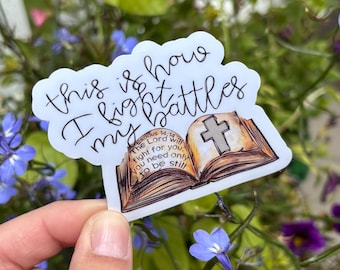 this is how
I fight
my battles
the Lord will
fight for you
you need only
to be still